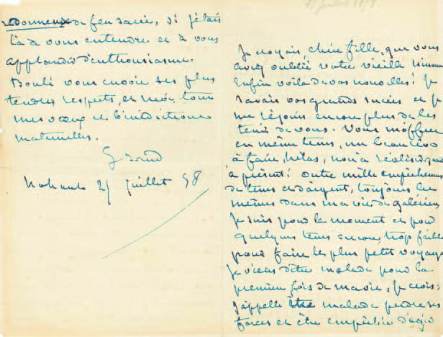 de feu sacré, si j'étais
là à vous entendre et à vous
applaudir d'enthousiasme.
Bouli vous envoie ses plus
tendres respects, et moi, tous
mes vœux et bénédictions
maternelles.
G Sand
Nohant 25 juillet 58
Je croyais, chère fille, que vous
aviez oublié votre vieille
Enfin voilà de vos nouvelles! Je
savais vos grands succès et je
me réjouis encore plus de les
tenir de vous. Vous m'offrez
en même tems, un beau rêve
à faire, hélas, non à réaliser, quant
à présent! outre mille empêchemens
de tems et d'argent, toujours les
mêmes dans ma vie de galérien,
je suis pour le moment et pour
quelques tems encore, trop faible
pour faire le plus petit voyage.
Je viens d'être malade pour la
première fois de ma vie, je crois:
j'appelle être malade perdre ses
forces et être empêchée d'agir